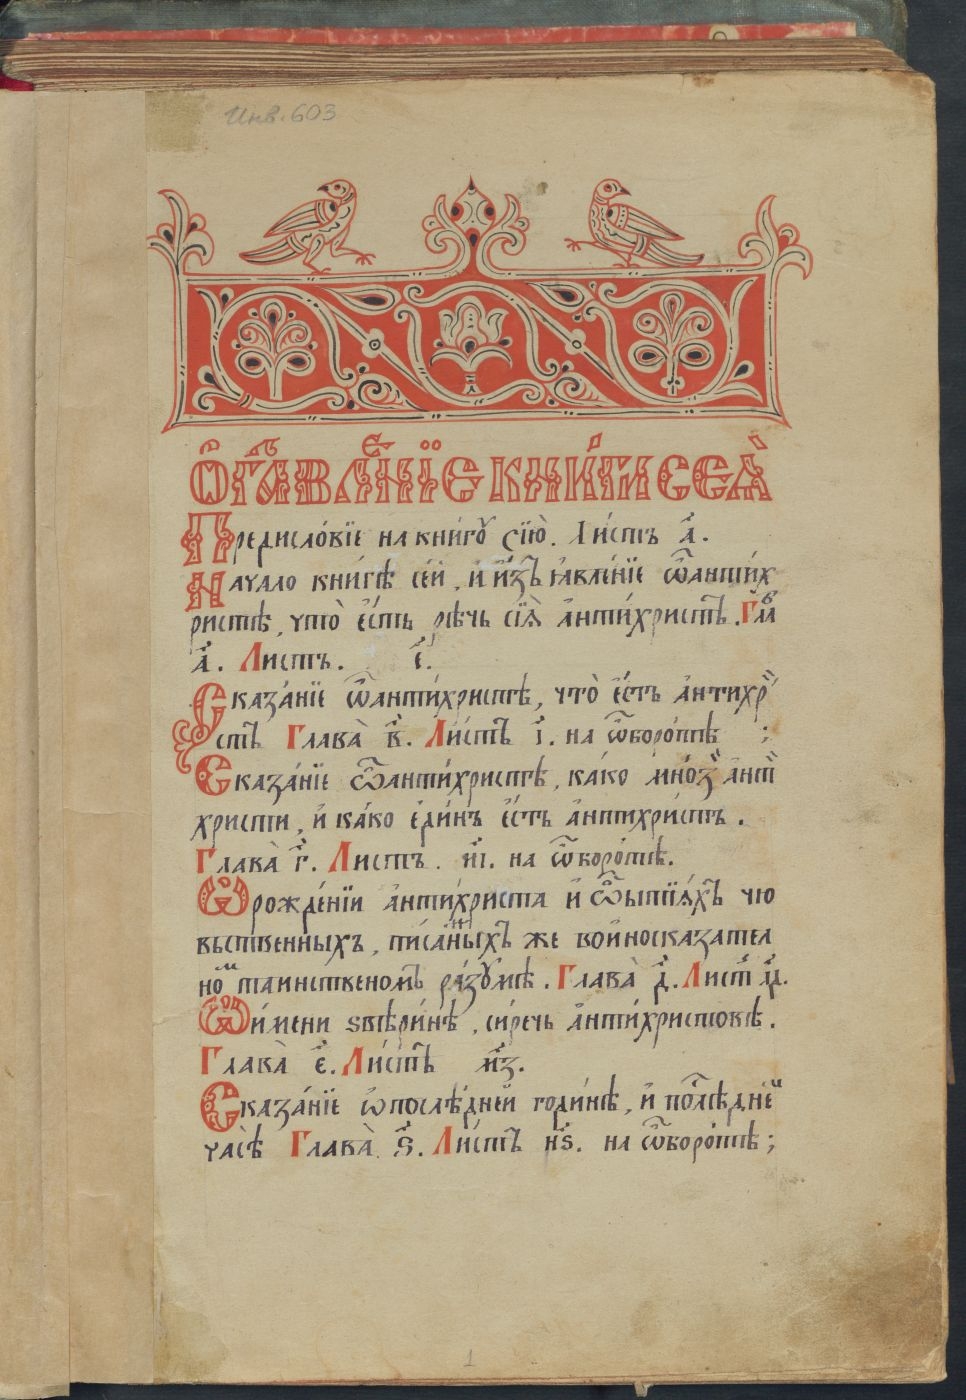 Инв. 603
Ѡ҆гла́вле́нїе кни́ги сея̀
Предисло́вїе на кни́гꙋ сїю̀. Ли́стъ а҃.
Начало кни́гѣ се́й, и҆ и҆́зъ ꙗ҆вле́нїе ѿанти́х
ристѣ, что̀ є҆́сть рѣчь сїѧ̀ а҆нти́христъ. Глав
а҃. Листъ. є҃.
Сказа́нїе ѿанти́христѣ, что̀ є҆́сть а҆нтихр̾
стъ Глава̀ в҃. Ли́стъ і҃. на ѿборо́тѣ ;
Сказа́нїе ѿанти́христѣ, ка́ко мно́з̾ а҆нт̾
христи, и҆ ка́ко є҆ди́нъ є҆́сть а҆нтихри́стъ.
Глава̀ г҃. Листъ. и҃і. на ѿборо́тѣ.
Ѡрожде́нїи а҆нти́христа и҆ ѿбытїѧ́хъ чю
вьственныхъ, писа́нныхъ же во и҆носказател
номъ таинственомъ ра́зꙋмѣ. Глава̀ д҃. Листъ л҃д.
Ѿи́мени ѕвѣри́нѣ, си́речь а҆нти́христовѣ.
Глава̀ є҃. Ли́стъ м҃з.
Сказа́нїе ѡ҆послѣ́дней годи́нѣ, и҆ послѣднїей
ча́сѣ Глава̀ ѕ҃. Ли́стъ н҃ѕ. на ѿборо́тѣ ;
1